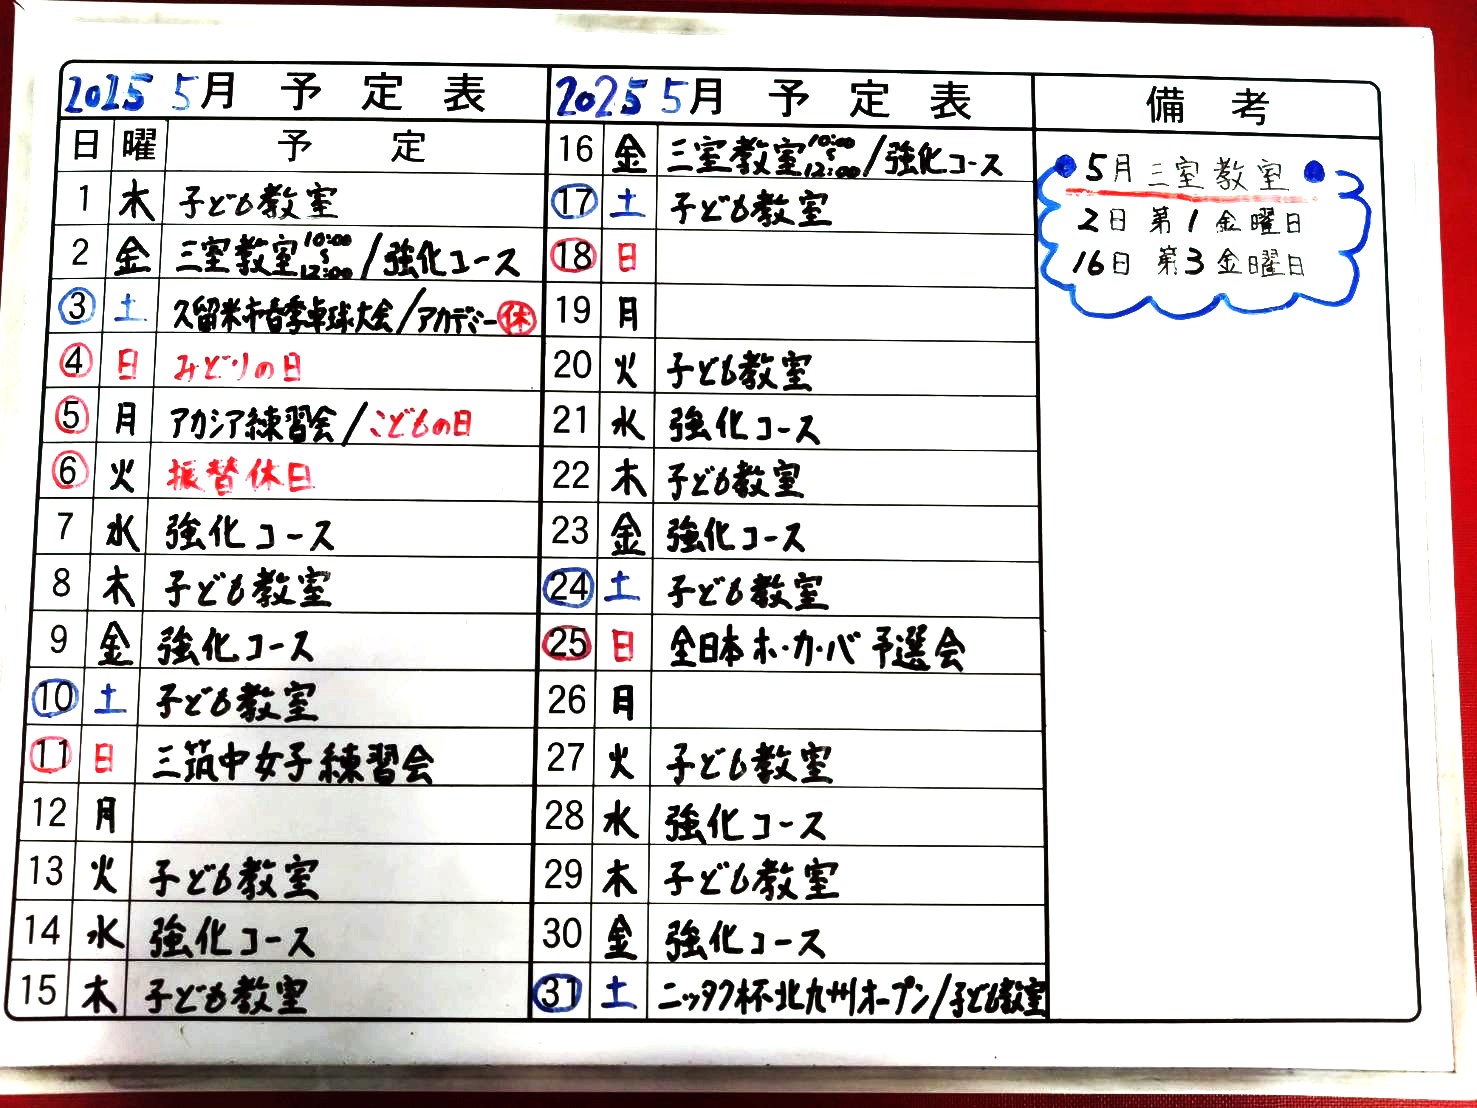 2025 5月 予定表
日 曜 予定
1 木 子ども教室
2 金 三室教室 10:00〜12:00/強化コース
3 土 久留米市春季卓球大会/アカデミー休
4 日 みどりの日
5 月 アカシア練習会/こどもの日
6 火 振替休日
7 水 強化コース
8 木 子ども教室
9 金 強化コース
10 土 子ども教室
11 日 三筑中女子練習会
12 月
13 火 子ども教室
14 水 強化コース
15 木 子ども教室
2025 5月 予定表
16 金 三室教室 10:00〜12:00/強化コース
17 土 子ども教室
18 日
19 月
20 火 子ども教室
21 水 強化コース
22 木 子ども教室
23 金 強化コース
24 土 子ども教室
25 日 全日本ホ・カ・バ予選会
26 月
27 火 子ども教室
28 水 強化コース
29 木 子ども教室
30 金 強化コース
31 土 ニッタク杯北九州オープン/子ども教室
備考
5月三室教室
2日 第1金曜日
16日 第3金曜日